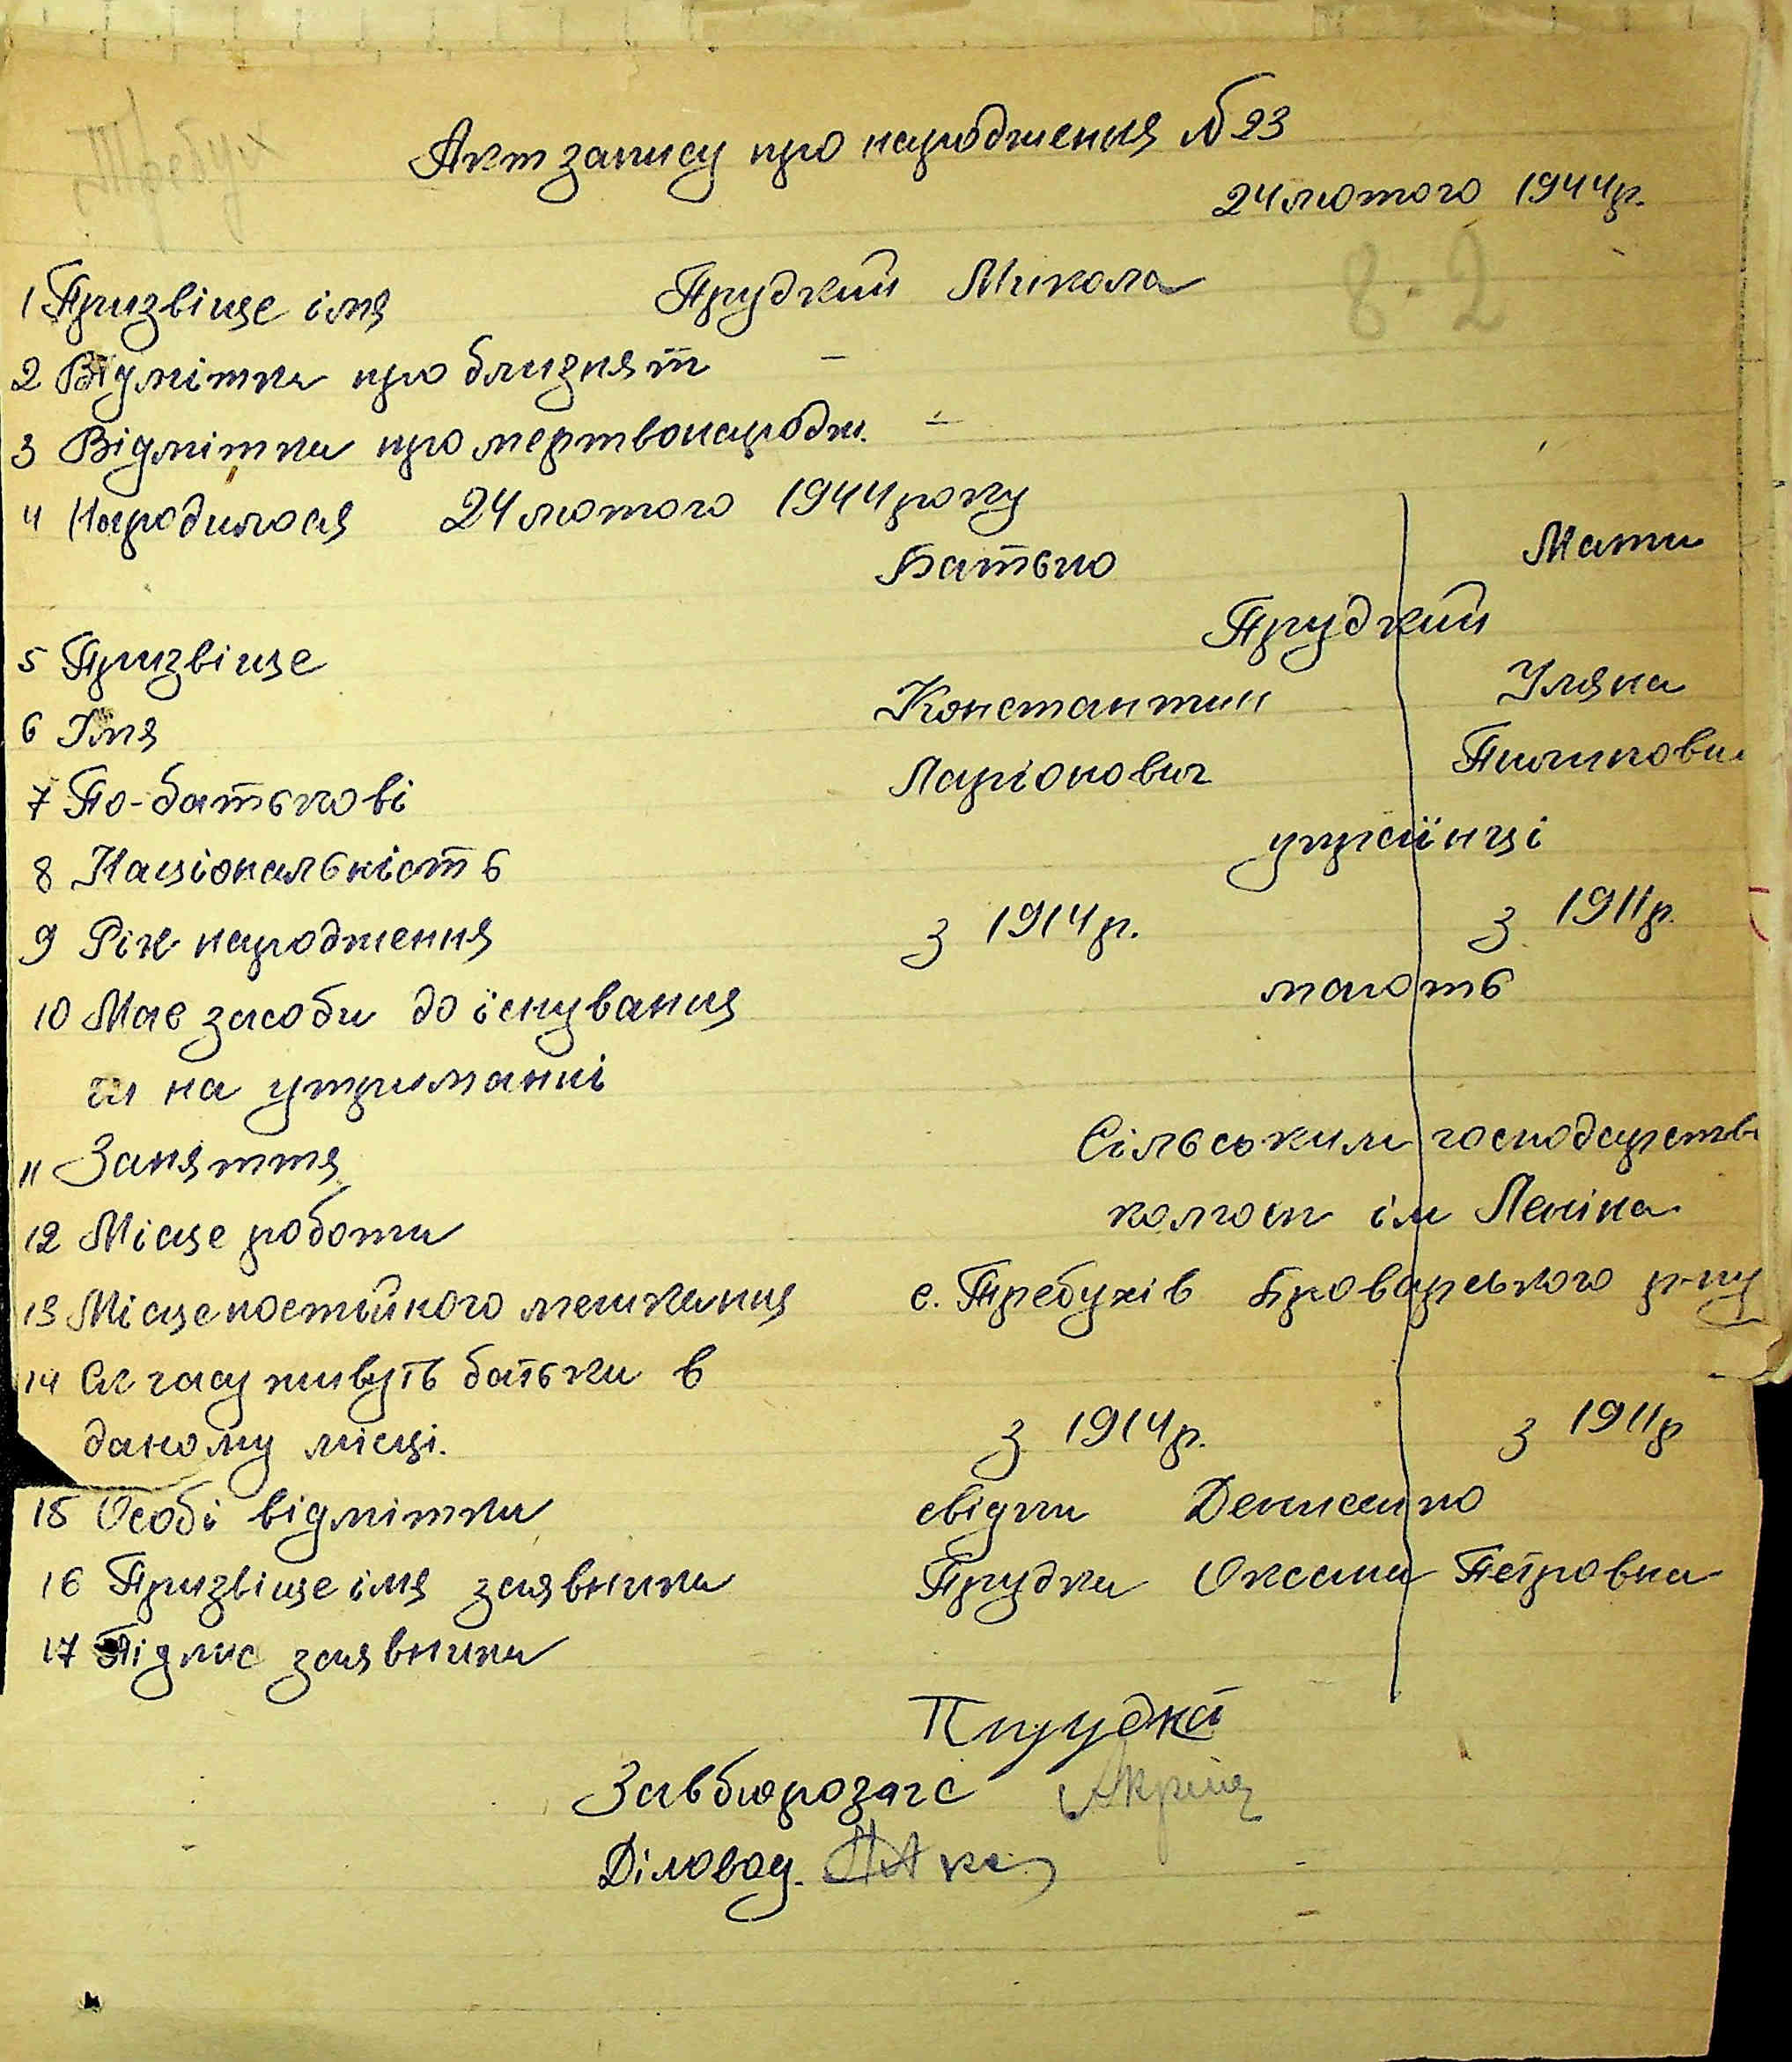 Требух
Акт запису про народження №23
24 лютого 1944р.
8-2
1 Призвіще імя Прудкий Микола
2 Відмітка про близнят –
3 Відмітка про мертвонародж. –
4 Народилося 24 лютого 1944 року
Батько Мати
5 Призвіще Прудкий
6 Імя Константин Уляна
7 По-батькові Ларіонович Пилиповна
8 Національність українці
9 Рік народження з 1914р. з 1911р.
10 Мае засоби до їснування мають
чи на утриманні
11 Заняття Сільським господарств
12 Місце роботи колгосп ім Леніна
13 Місце постійного мешкання с. Требухів Броварського р-ну
14 Як часу живуть батьки в
даному місці. з 1914р. з 1911р
15 Особі відмітки свідки Денисенко
16 Призвіще імя заявника Прудка Оксана Петровна
17 Підпис заявника
Прудка
Завбюрозагс
Діловод.